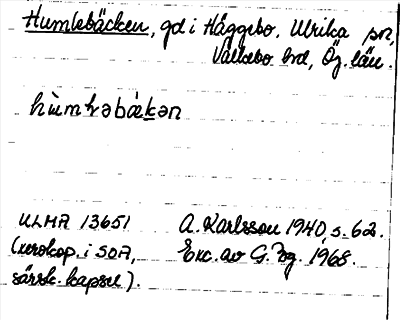 Humlebäcken, gd i Häggebo, Ulrika sn,
Valkebo hd, Ög. län.
hùmləbǽkən
ULMA 13651 A. Karlsson 1940, s. 62.
(xerokop. i SOA, Exc. av G. Bg. 1968.
särsk. kapsel).